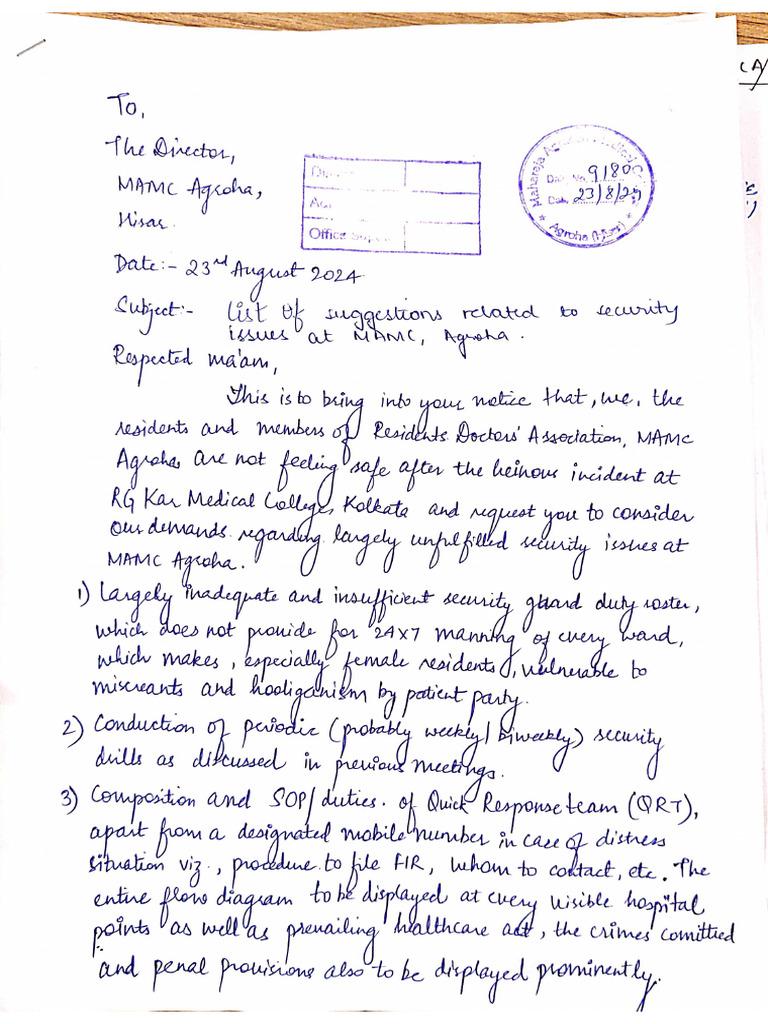 To,
The Director,
MAMC Agroha,
Hisar.
Office Supdt
Maharaja Agrasen Medical C
Dairy No. 9180
Date 23/8/24
Agroha (Hisar)
Date:- 23rd August 2024
Subject:- List of suggestions related to security
issues at MAMC, Agroha.
Respected ma'am,
This is to bring into your notice that, we, the
residents and members of Residents Doctors' Association, MAMC
Agroha, are not feeling safe after the heinous incident at
RG Kar Medical College, Kolkata and request you to consider
our demands regarding largely unfulfilled security issues at
MAMC Agroha.
1) Largely inadequate and insufficient security guard duty roster,
which does not provide for 24x7 manning of every ward,
which makes, especially female residents, vulnerable to
miscreants and hooliganism by patient party.
2) Conduction of periodic (probably weekly/biweekly) security
drills as discussed in previous meetings.
3) Composition and SOP/duties. of Quick Response team (QRT),
apart from a designated mobile number in case of distress
situation viz., procedure to file FIR, whom to contact, etc. The
entire flow diagram to be displayed at every visible hospital
points as well as prevailing healthcare act, the crimes comitted
and penal provisions also to be displayed prominently.